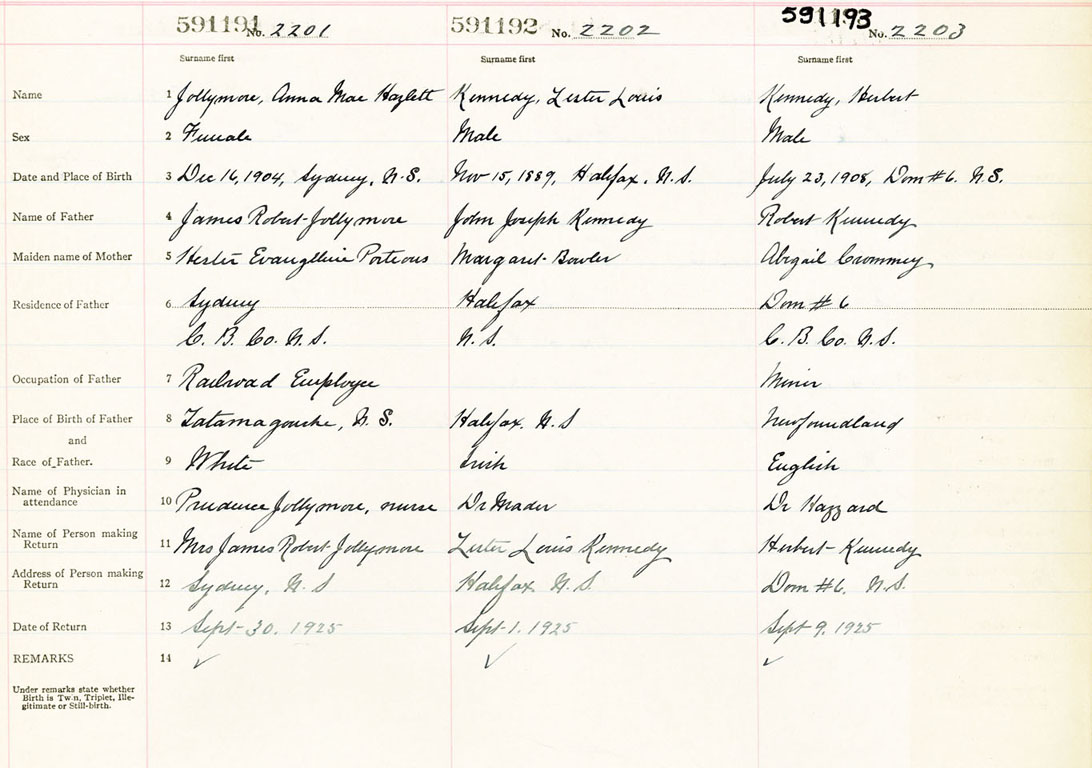 591191 No. 2201 591192 No. 2202 591193 No. 2203
Surname first Surname first Surname first
Name 1 Jollymore, Anna Mae Hazlett Kennedy, Lester Louis Kennedy, Herbert
Sex 2 Female Male Male
Date and Place of Birth 3 Dec 16, 1904, Sydney, N.S. Nov 15, 1889, Halifax, N.S. July 23, 1908, Dom #6. N.S.
Name of Father 4 James Robert Jollymore John Joseph Kennedy Robert Kennedy
Maiden name of Mother 5 Hester Evangeline Porteous Margaret Bowler Abigail Crommey
Residence of Father 6 Sydney Halifax Dom # 6
C. B. Co. N.S. N.S. C. B. Co. N.S.
Occupation of Father 7 Railroad Employee Miner
Place of Birth of Father 8 Tatamagouche, N.S. Halifax. N.S Newfoundland
and
Race of Father. 9 White Irish English
Name of Physician in
attendance 10 Prudence Jollymore, nurse Dr Mader Dr Hazzard
Name of Person making
Return 11 Mrs James Robert Jollymore Lester Louis Kennedy Herbert Kennedy
Address of Person making
Return 12 Sydney, N.S Halifax N.S. Dom #6, N.S.
Date of Return 13 Sept 30. 1925 Sept 1. 1925 Sept 9. 1925
REMARKS 14 ✓ ✓ ✓
Under remarks state whether
Birth is Twin, Triplet, Ille-
gitimate or Still-birth.